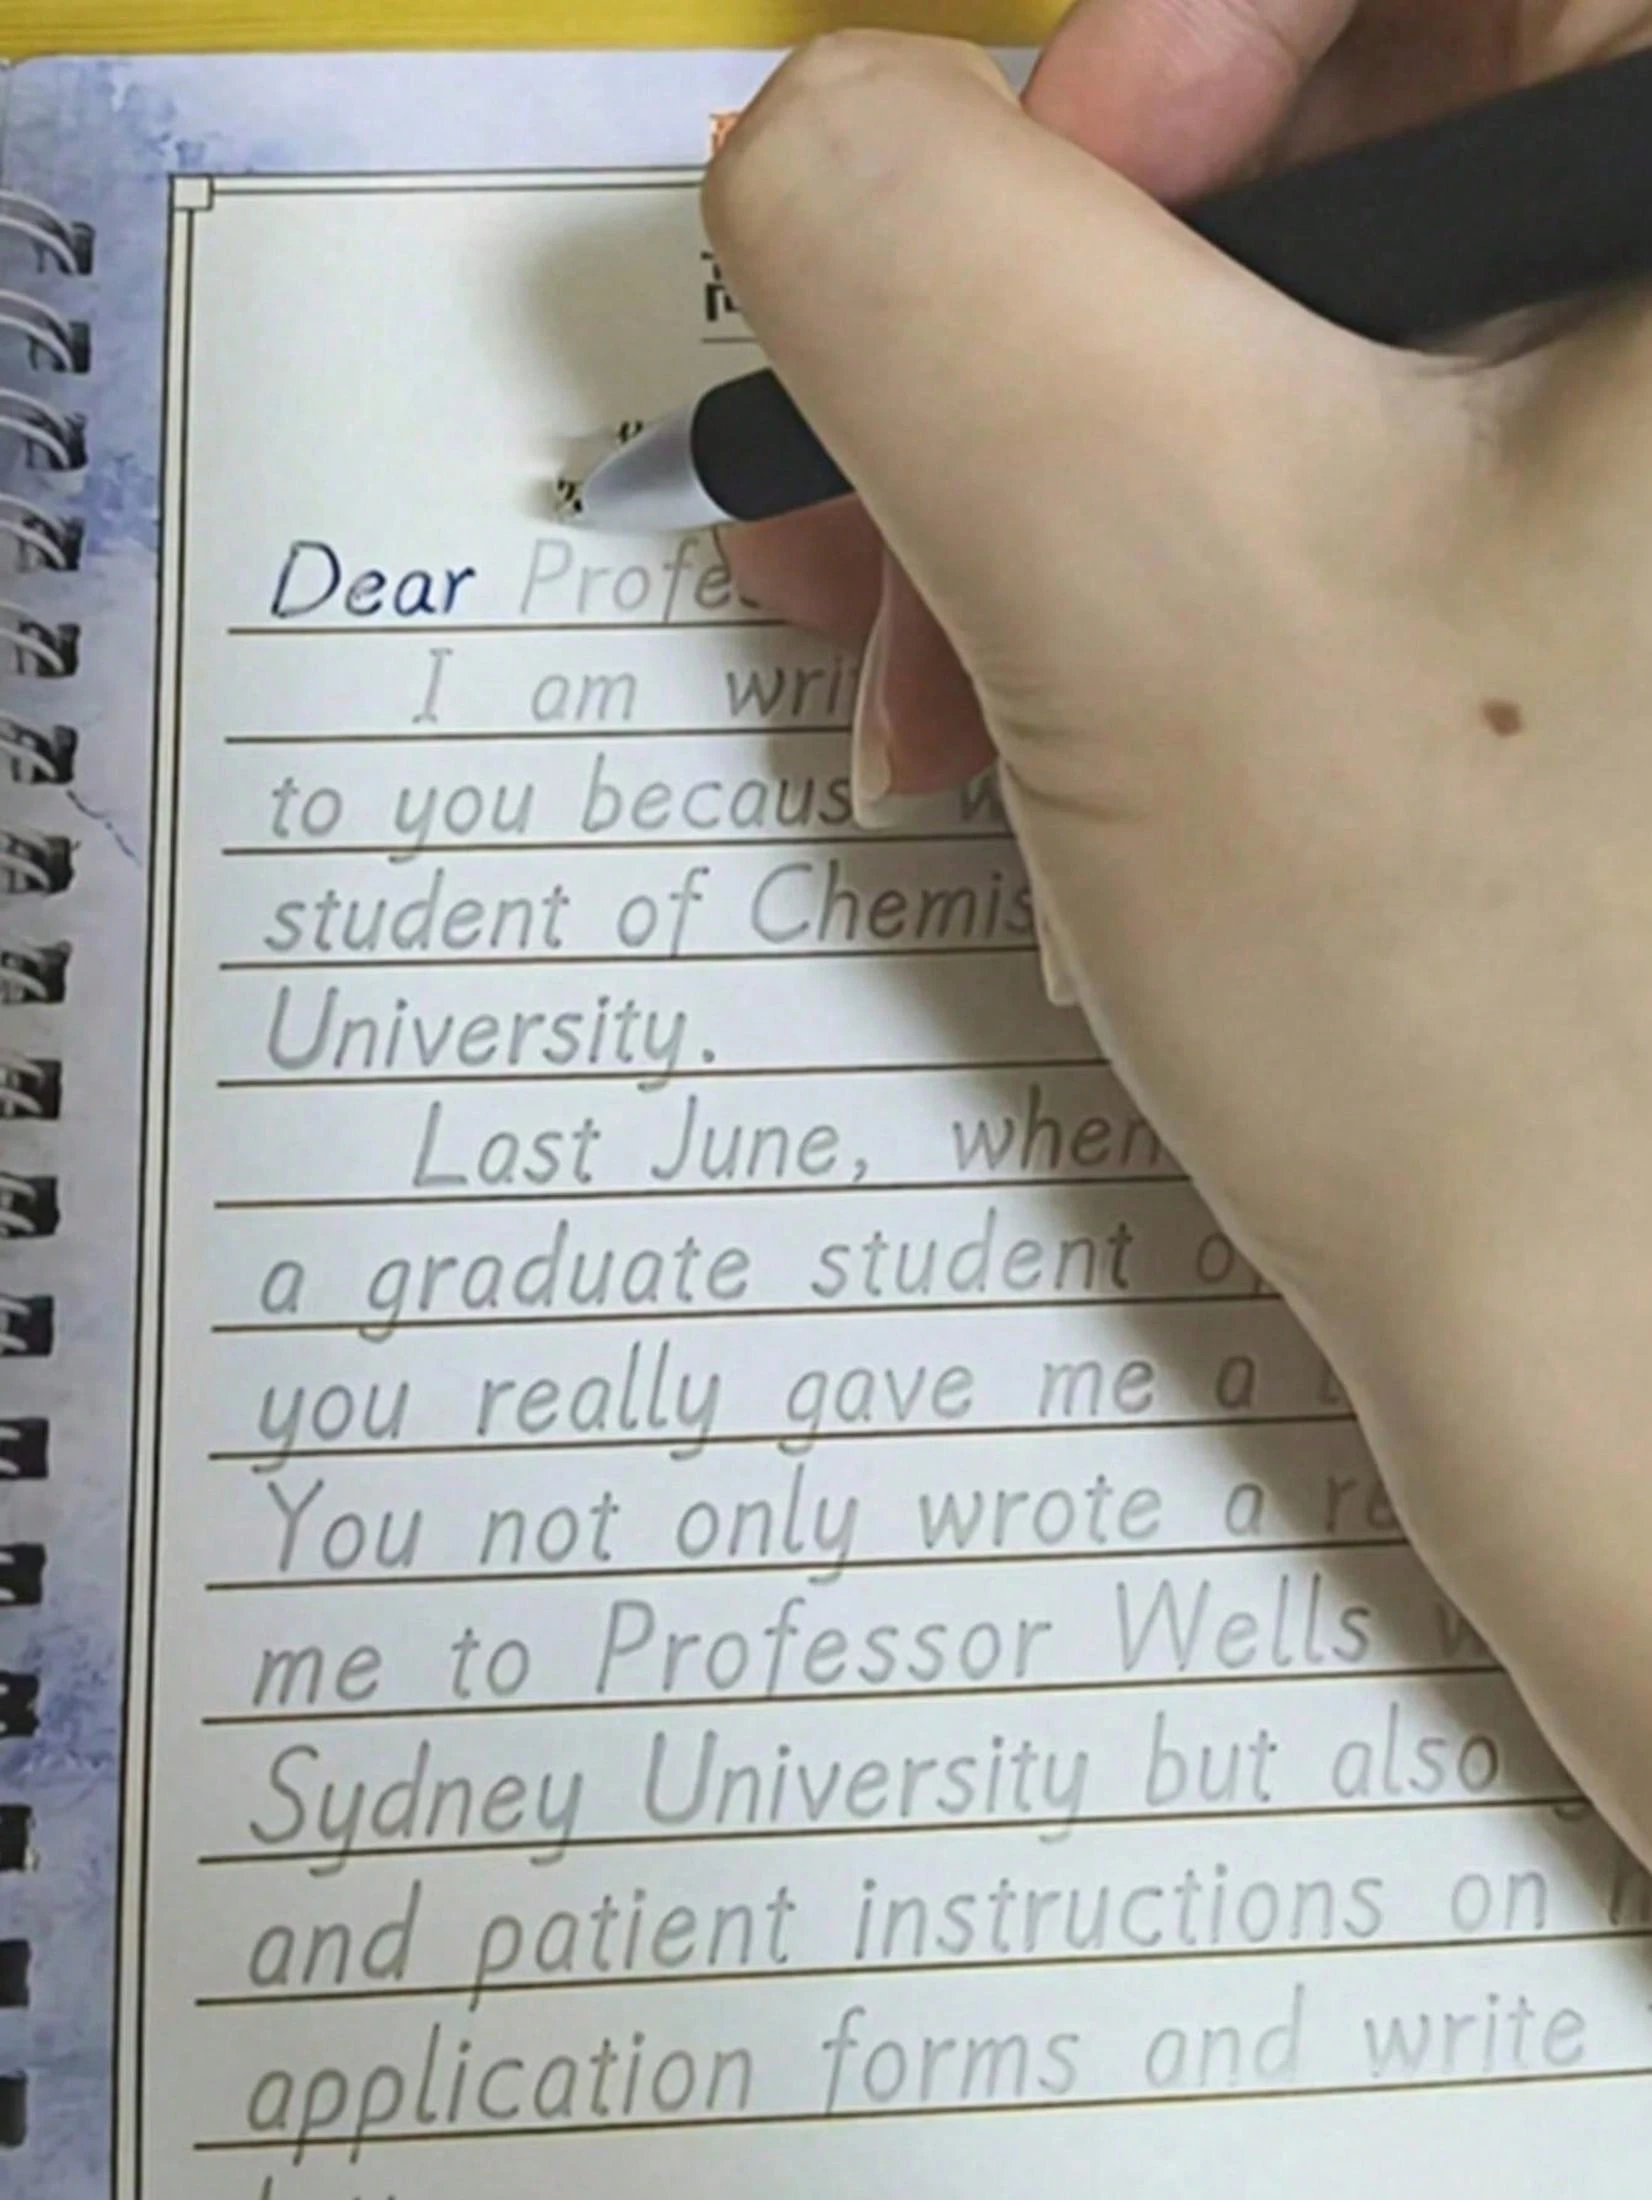 Dear
I am
to you
student of
University.
Last June, when
a graduate student
you really gave me a
You not only wrote a
me to Professor Wells
Sydney University but also
and patient instructions on
application forms and write